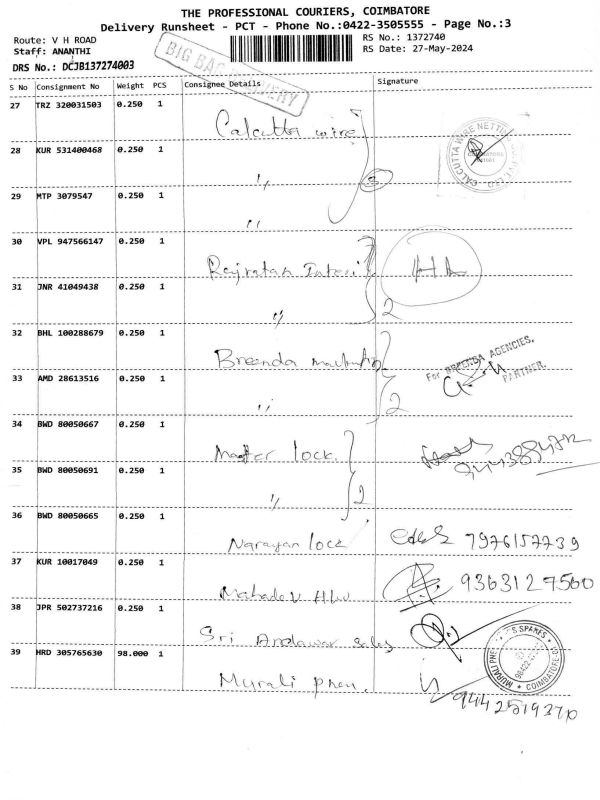 THE PROFESSIONAL COURIERS, COIMBATORE
Delivery Runsheet - PCT - Phone No.:0422-3505555 - Page No.:3
Route: V H ROAD
RS No.: 1372740
Staff: ANANTHI
RS Date: 27-May-2024
DRS No.: DCJB137274003
BIG BAG DELIVERY
S No Consignment No Weight PCS Consignee Details Signature
27 TRZ 320031503 0.250 1
Calcutta wire
28 KUR 531400468 0.250 1
CALCUTTA WIRE NETTING
COIMBATORE
"
29 MTP 3079547 0.250 1
"
30 VPL 947566147 0.250 1
Rajratan
31 JNR 41049438 0.250 1
" 2
32 BHL 100288679 0.250 1
Breenda
For BREENDA AGENCIES.
PARTNER.
33 AMD 28613516 0.250 1
" 2
34 BWD 80050667 0.250 1
Master lock.
35 BWD 80050691 0.250 1
" 2
36 BWD 80050665 0.250 1
Narayan lock 7976157739
37 KUR 10017049 0.250 1
Mahadev H/w 9363127560
38 JPR 502737216 0.250 1
Sri Andawar sales
39 HRD 305765630 98.000 1
Murali pneu.
MURALI PNE S.SPARES
COIMBATORE